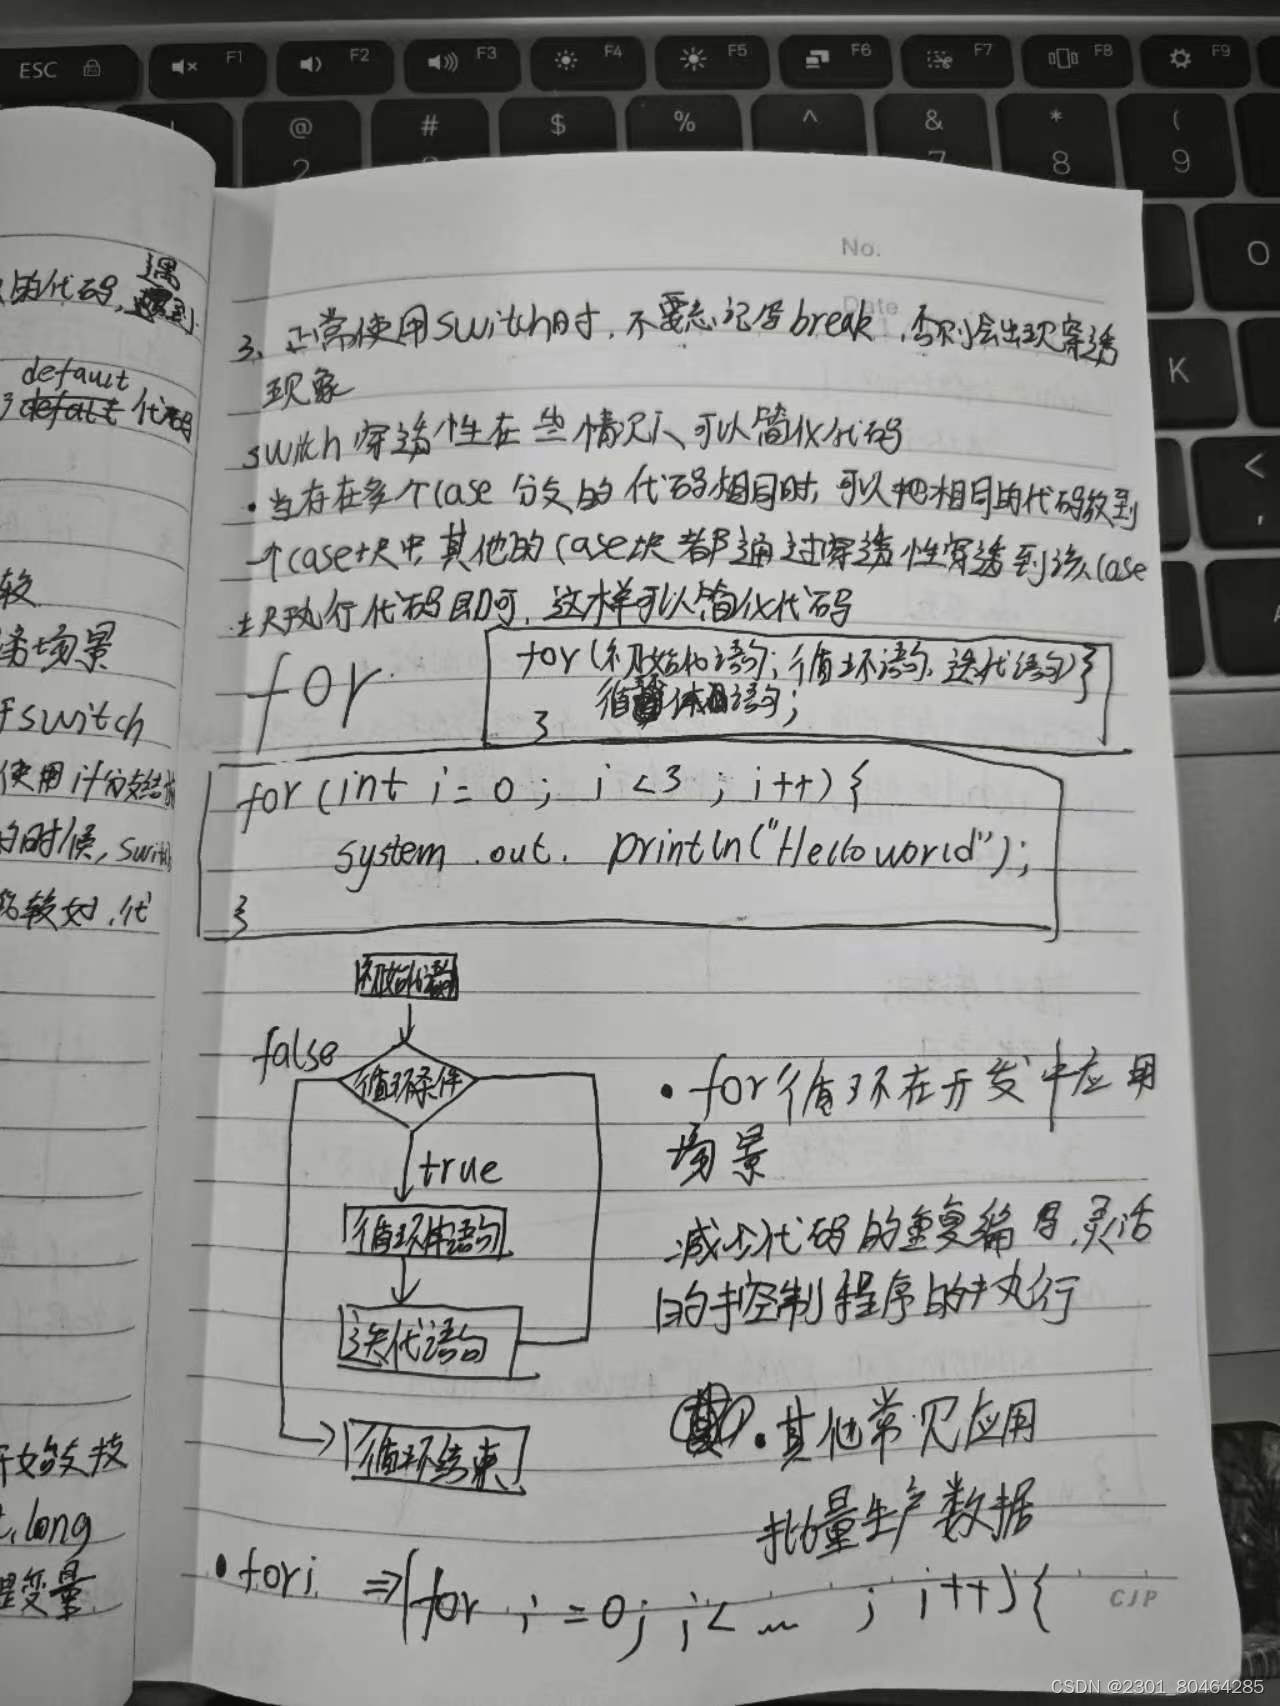 ESC F1 F2 F3 F4 F5 F6 F7 F8 F9
@ # $ % ^ & * (
2 7 8 9
O
K
<
,
的代码,遇到
default
代码
较
场景
switch
使用if分支结构
的时候,switch
较好,代
开始支持
long
变量
No.
Date
3、正常使用switch时,不要忘记写break,否则会出现穿透
现象
switch穿透性在些情况下可以简化代码
·当存在多个case分支的代码相同时,可以把相同的代码放到
一个case块中,其他的case块都通过穿透性穿透到该case
块执行代码即可,这样可以简化代码
for
for(初始化语句;循环语句;迭代语句){
循环体语句;
}
for(int i=0; i<3; i++){
system.out.println("Hello world");
}
初始化语句
false
循环条件
true
循环体语句
迭代语句
循环结束
·for循环在开发中应用
场景
减少代码的重复编写,灵活
的控制程序的执行
·其他常见应用
批量生产数据
·fori ⇒ for i=0; i<… ; i++){
CJP
CSDN @2301_80464285